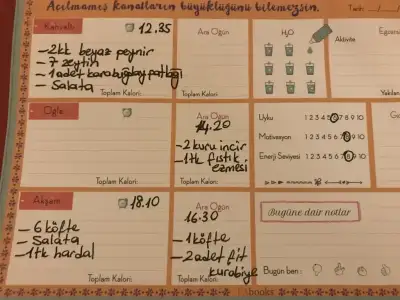 Açılmamış kanatların büyüklüğünü bilemezsin.
Tarih: / /
Kahvaltı 12.35
-2kk beyaz peynir
-7 zeytin
-1 adet karabuğday patlağı
-Salata
Toplam Kalori:
Ara Öğün
Toplam Kalori:
H₂O
Aktivite
Yakılan
Öğle
Toplam Kalori:
Ara Öğün
14.20
-2 kuru incir
-1tk fıstık ezmesi
Toplam Kalori:
Uyku 1 2 3 4 5 6 7 8 9 10
Motivasyon 1 2 3 4 5 6 7 8 9 10
Enerji Seviyesi 1 2 3 4 5 6 7 8 9 10
Akşam 18.10
-6 köfte
-Salata
-1tk hardal
Toplam Kalori:
Ara Öğün
16.30
-1 köfte
-2 adet fit kurabiye
Toplam Kalori:
Bugüne dair notlar
Bugün ben:
books